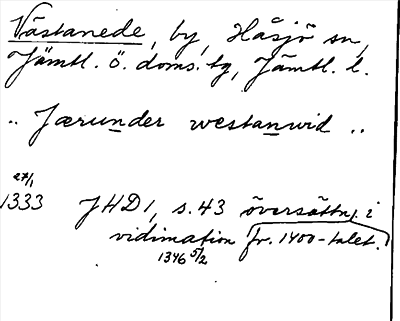 Västanede, by, Håsjö sn,
Jämtl. ö. doms. tg, Jämtl. l.
.. Jærunder westanwid ..
27/1
1333 JHD 1, s. 43 översättn. i
vidimation fr. 1400-talet.
1346 5/2